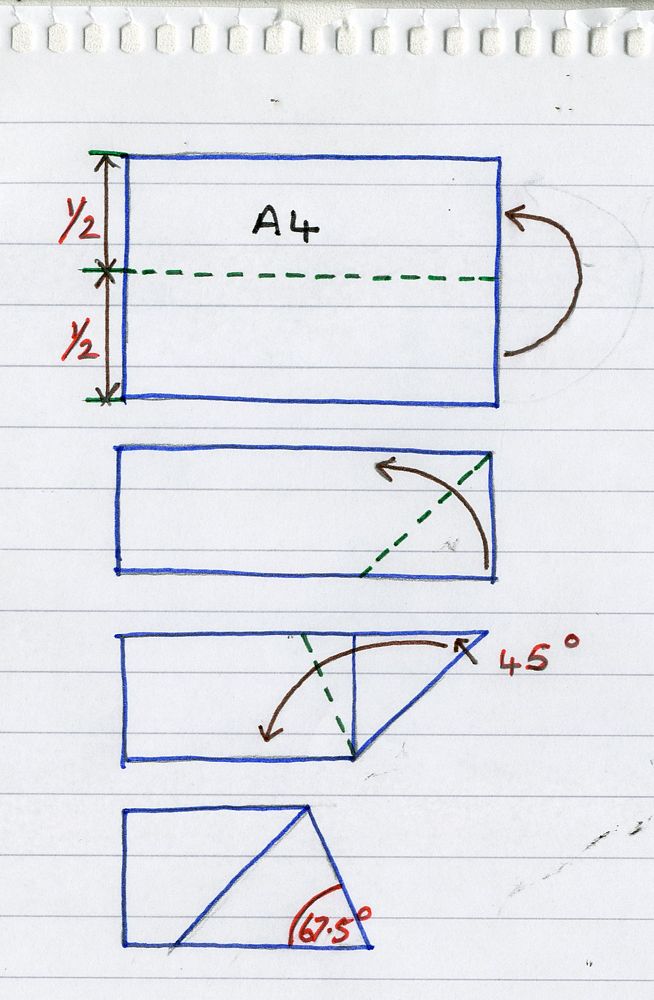 1/2
A4
1/2
45°
67.5°